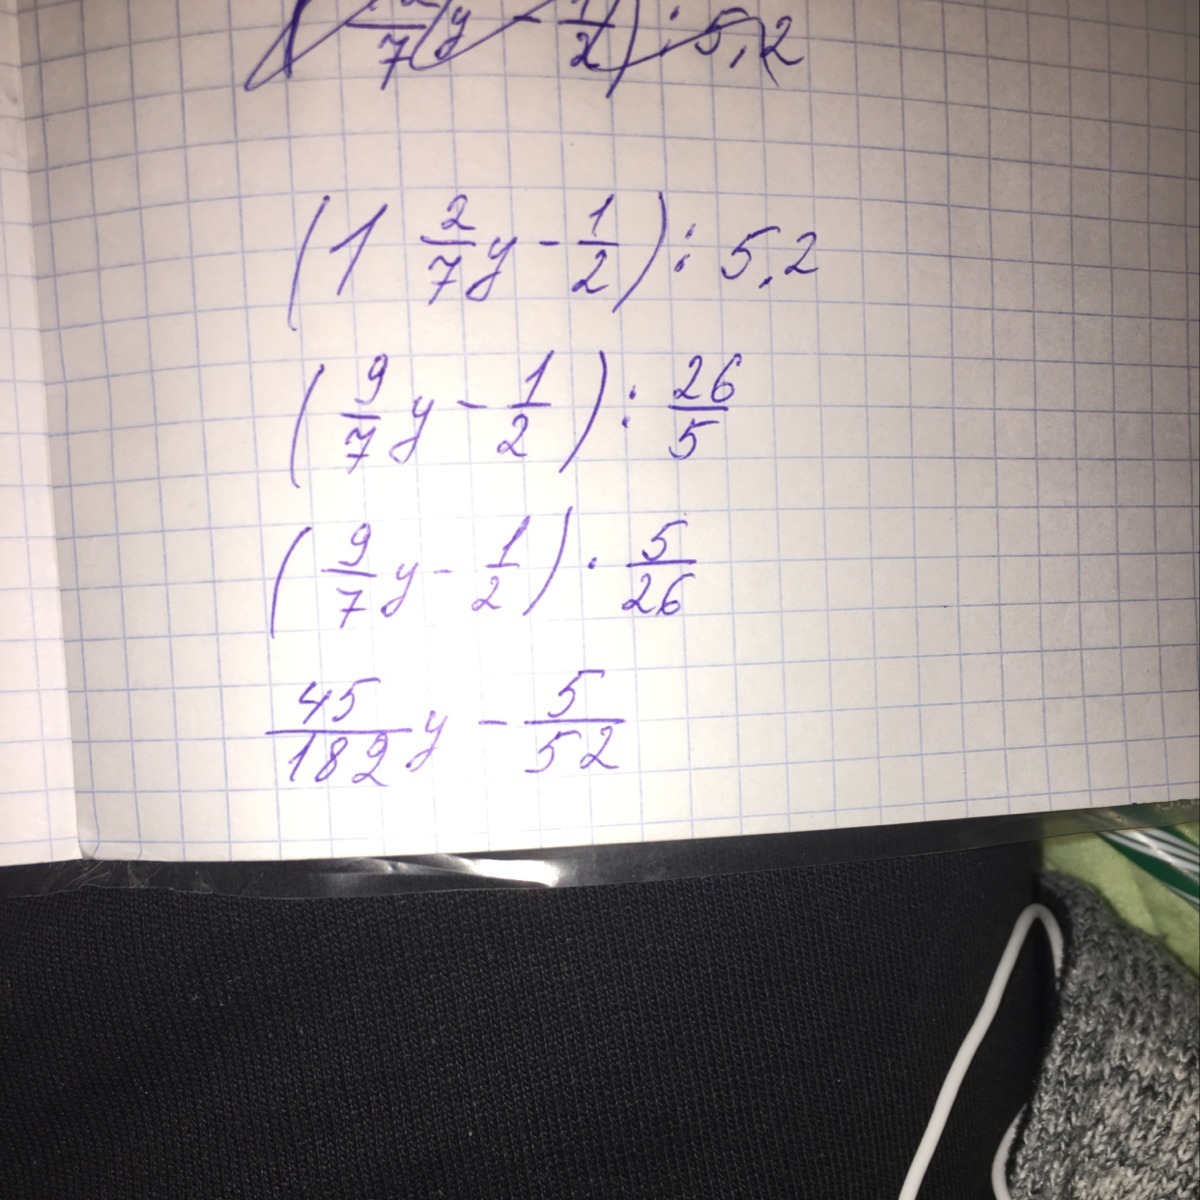 7 y - 1/2) : 5,2
(1 2/7 y - 1/2) : 5,2
(9/7 y - 1/2) : 26/5
(9/7 y - 1/2) · 5/26
45/182 y - 5/52